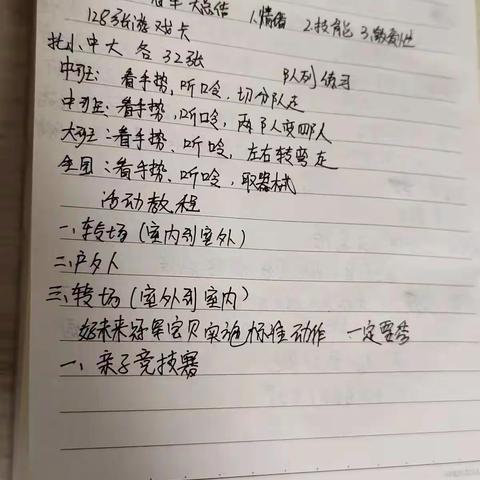 大总结 1.情绪 2.技能 3.
128张游戏卡
托小中大 各32张
队列练习
中班: 看手势,听口令,切分队走
中班:看手势,听口令,两队变四队
大班:看手势、听口令,左右转弯走
全园:看手势、听口令,取器械
活动教程
一、转场(室内到室外)
二、户外
三、转场(室外到室内)
好未来冠军宝贝实施标准动作 一定要
一、亲子竞技赛